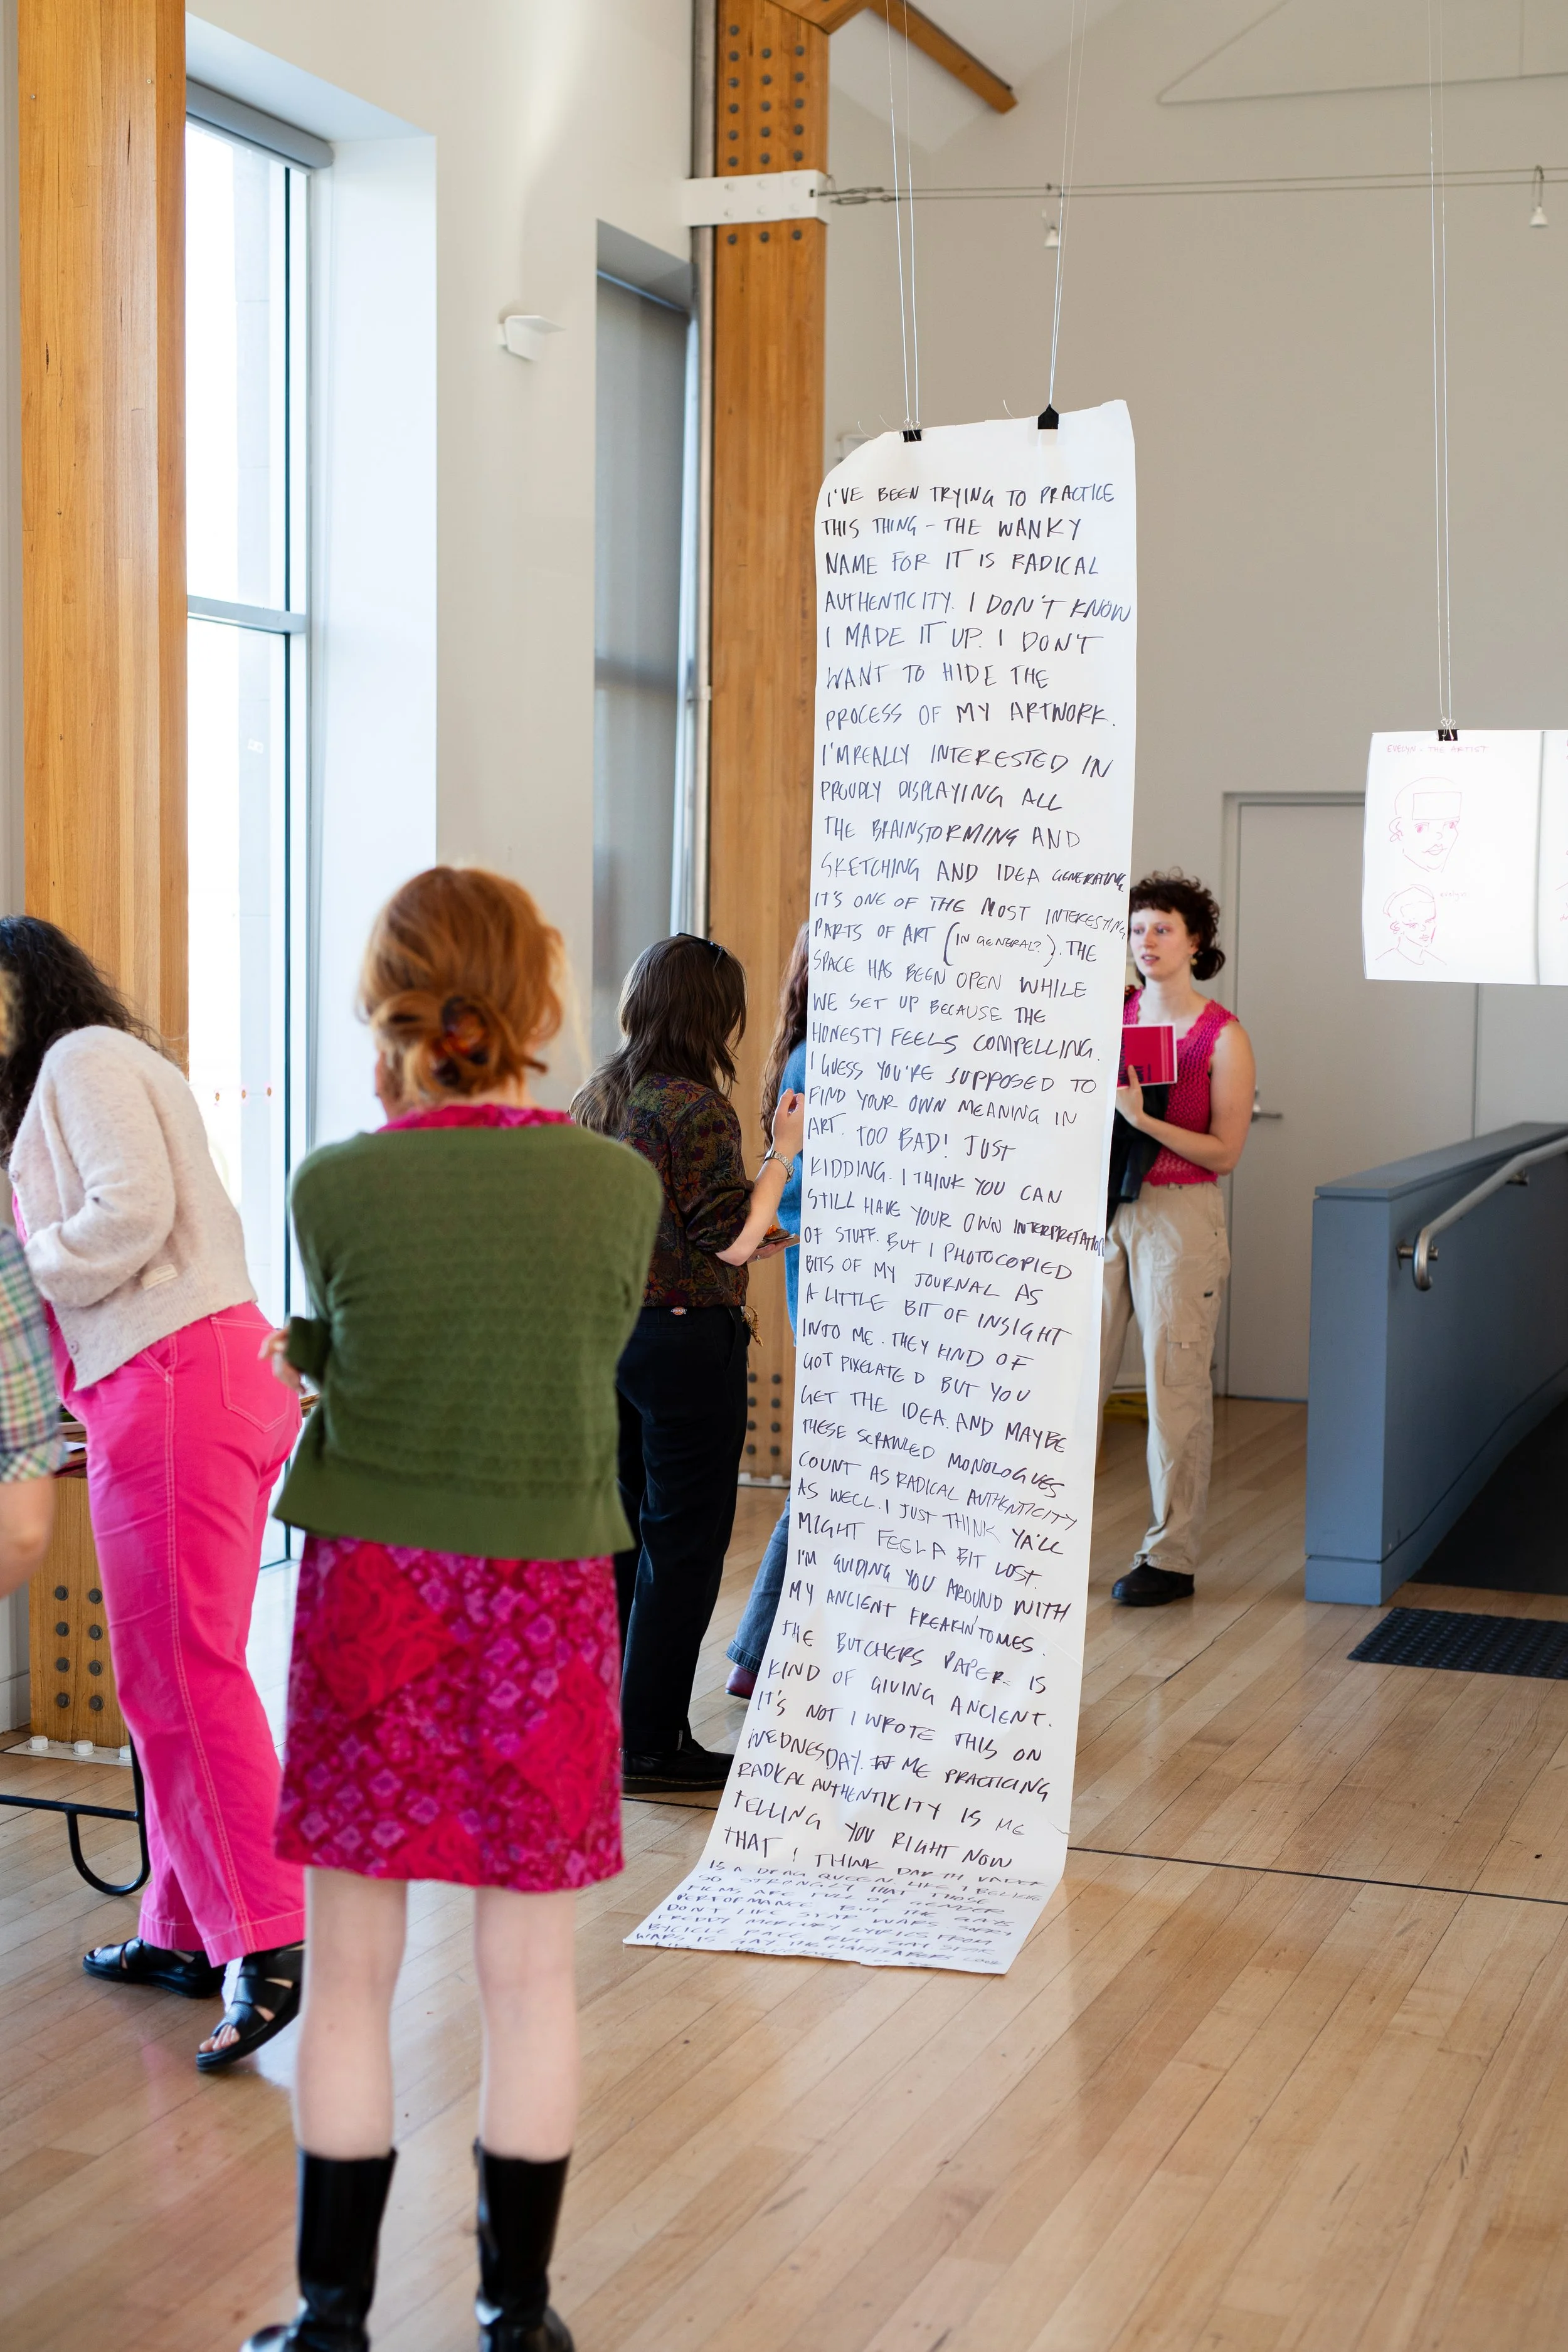 I'VE BEEN TRYING TO PRACTICE
THIS THING - THE WANKY
NAME FOR IT IS RADICAL
AUTHENTICITY. I DON'T KNOW
I MADE IT UP. I DON'T
WANT TO HIDE THE
PROCESS OF MY ARTWORK.
I'M REALLY INTERESTED IN
PROUDLY DISPLAYING ALL
THE BRAINSTORMING AND
SKETCHING AND IDEA GENERATING
IT'S ONE OF THE MOST INTERESTING
PARTS OF ART (IN GENERAL?). THE
SPACE HAS BEEN OPEN WHILE
WE SET UP BECAUSE THE
HONESTY FEELS COMPELLING.
I GUESS YOU'RE SUPPOSED TO
FIND YOUR OWN MEANING IN
ART. TOO BAD! JUST
KIDDING. I THINK YOU CAN
STILL HAVE YOUR OWN INTERPRETATION
OF STUFF. BUT I PHOTOCOPIED
BITS OF MY JOURNAL AS
A LITTLE BIT OF INSIGHT
INTO ME. THEY KIND OF
GOT PIXELATED BUT YOU
GET THE IDEA. AND MAYBE
THESE SCRAWLED MONOLOGUES
COUNT AS RADICAL AUTHENTICITY
AS WELL. I JUST THINK YA'LL
MIGHT FEEL A BIT LOST.
I'M GUIDING YOU AROUND WITH
MY ANCIENT FREAKIN' TOMES.
THE BUTCHERS PAPER IS
KIND OF GIVING ANCIENT.
IT'S NOT I WROTE THIS ON
WEDNESDAY. ME PRACTICING
RADICAL AUTHENTICITY IS ME
TELLING YOU RIGHT NOW
THAT I THINK DARTH VADER
IS A DRAG QUEEN LIKE I BELIEVE
SO STRONGLY THAT THOSE
FILMS ARE FULL OF GENDER
PERFORMANCE BUT THE GAYS
DON'T LIKE STAR WARS
FREDDY MERCURY LYRICS FROM
BICICLE RACE BUT
WARS IS GAY THE
EVELYN - THE ARTIST